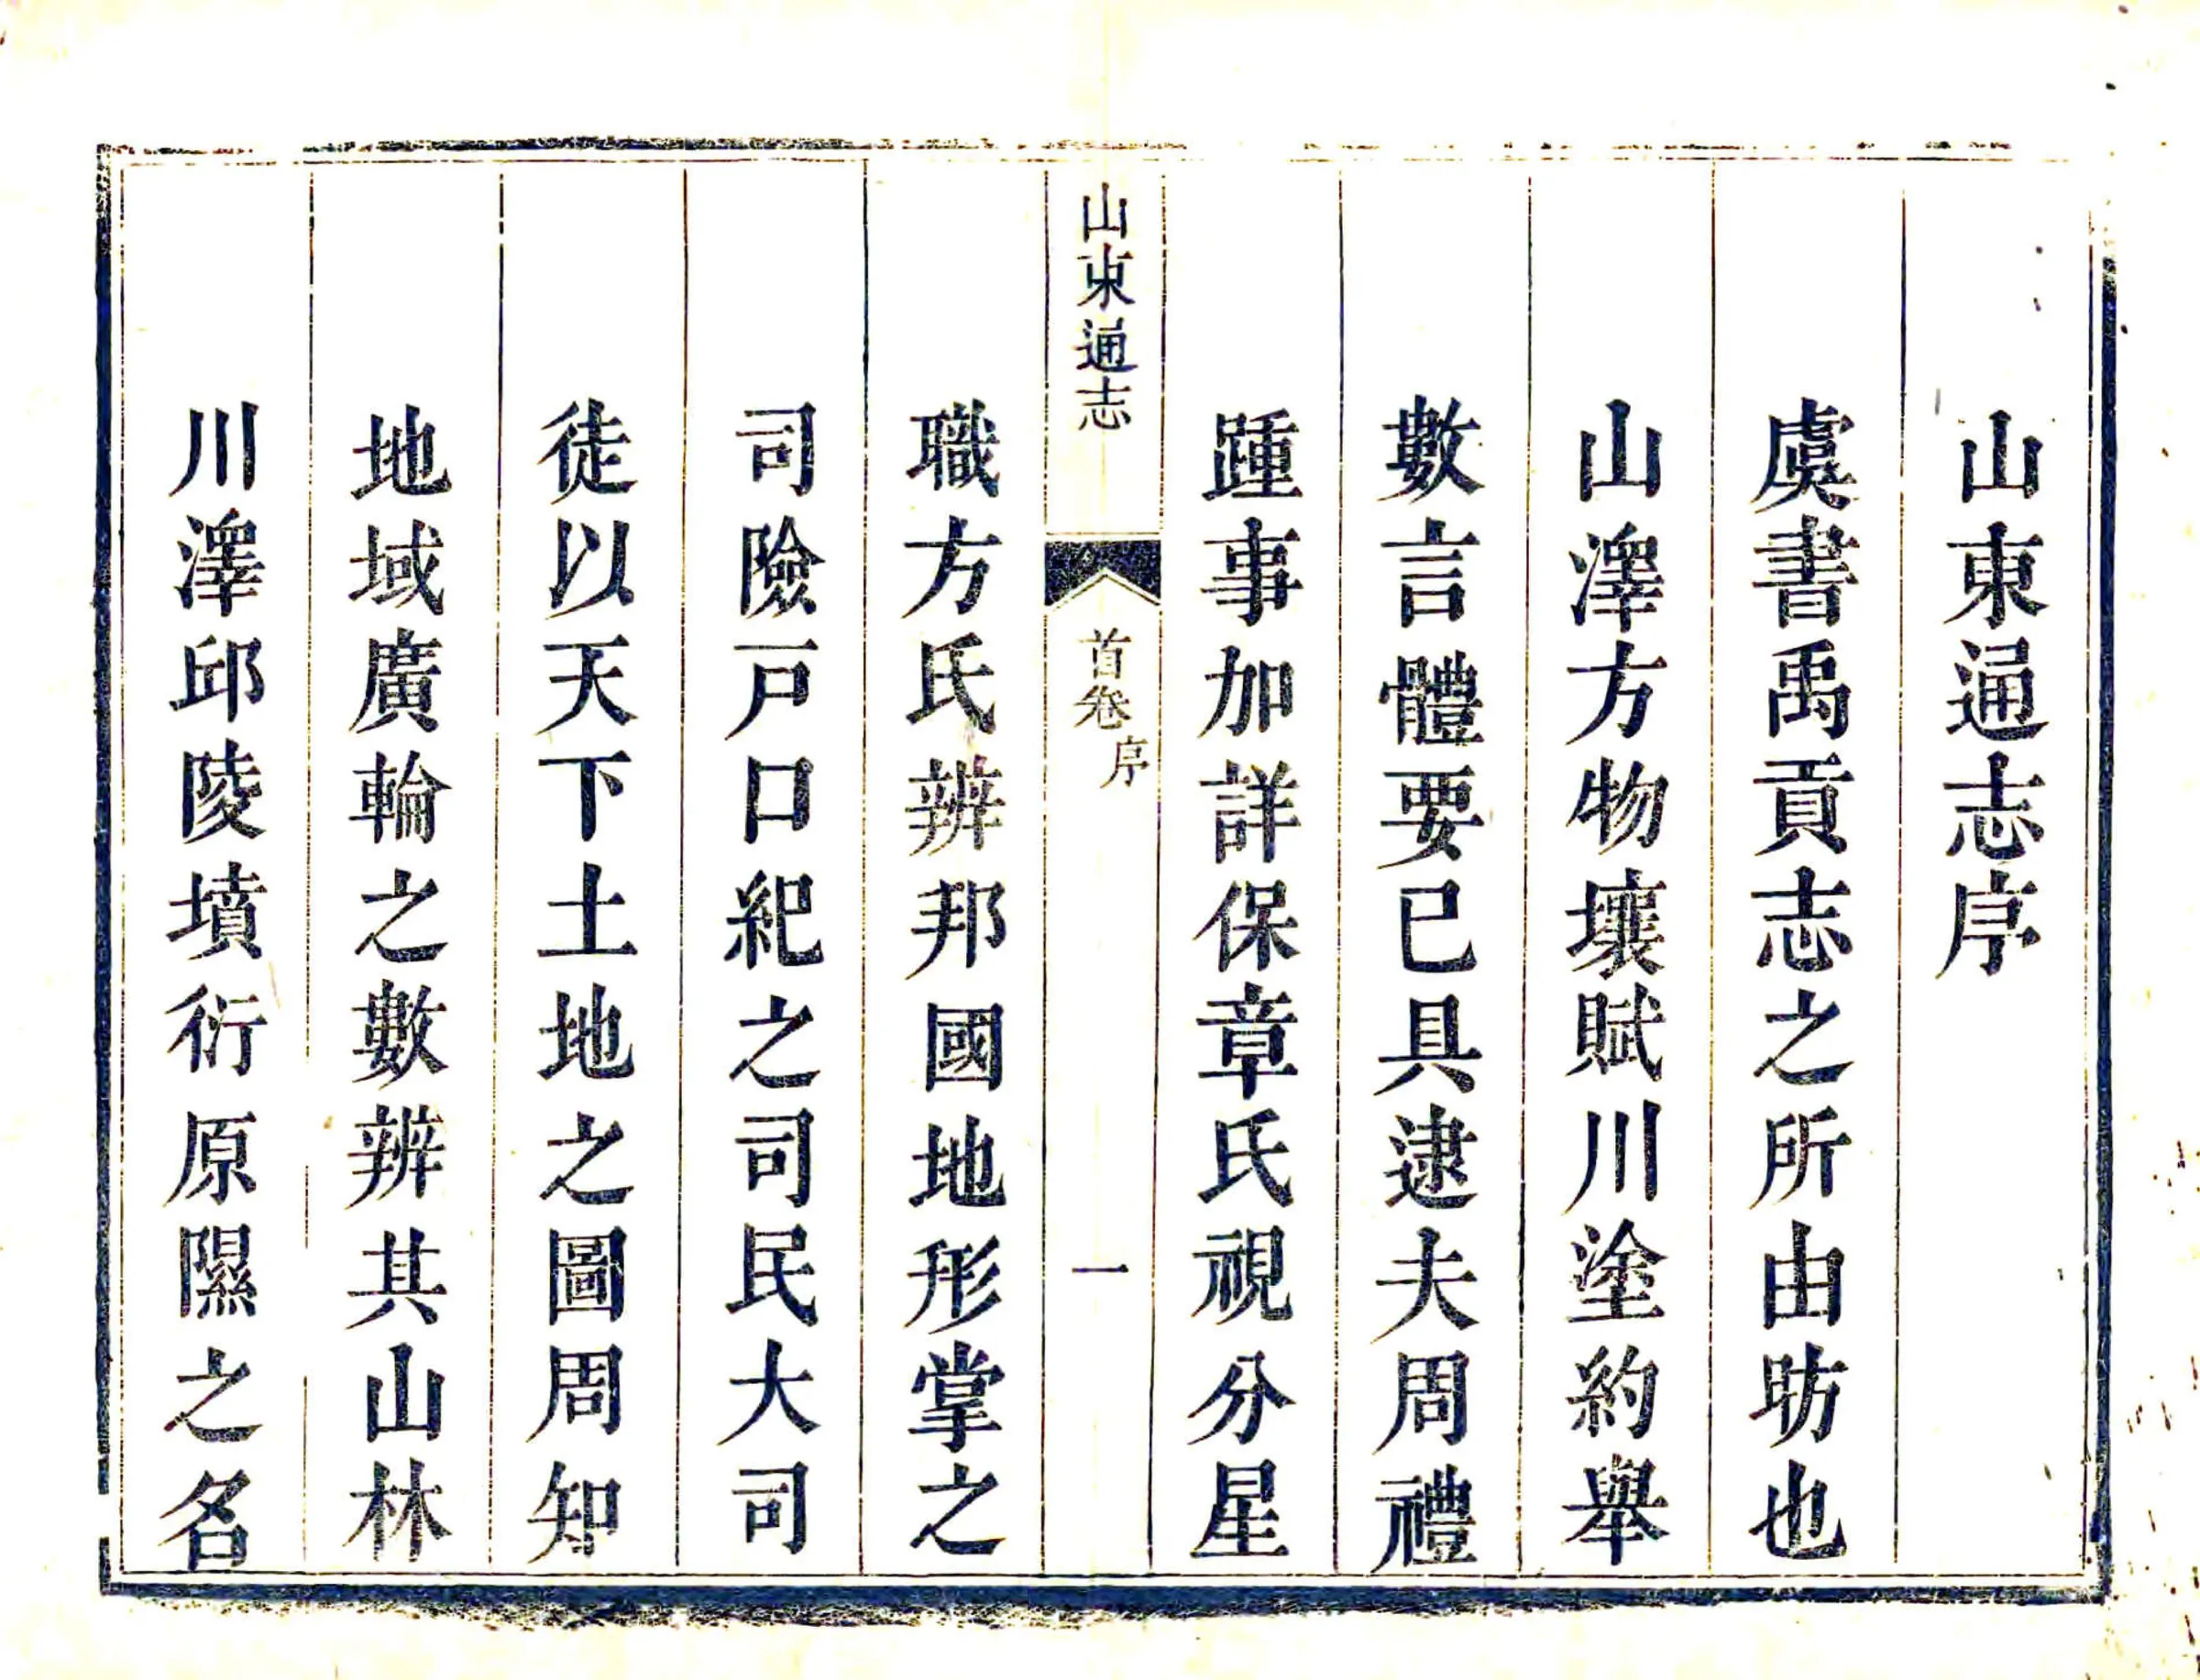 山東通志序
虞書禹貢志之所由昉也
山澤方物壤賦川塗約舉
數言體要已具逮夫周禮
踵事加詳保章氏視分星
山東通志
首卷
序
一
職方氏辨邦國地形掌之
司險戸口紀之司民大司
徒以天下土地之圖周知
地域廣輪之數辨其山林
川澤邱陵墳衍原隰之名